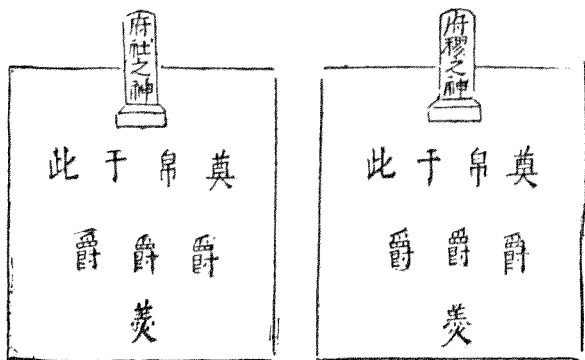 府稷之神
奠帛于此
爵爵爵
羹
府社之神
奠帛于此
爵爵爵
羹